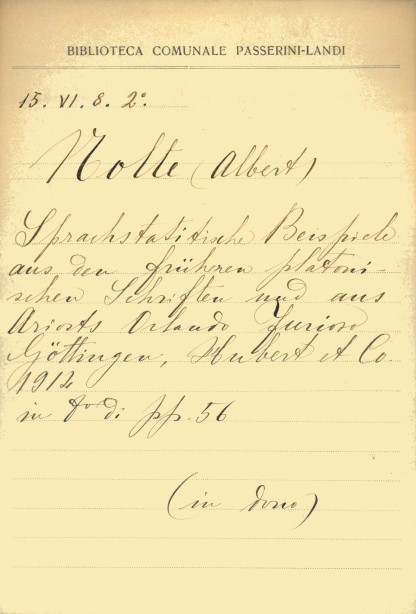 BIBLIOTECA COMUNALE PASSERINI-LANDI
15. VI. 8. 2º.
Nolte (Albert)
Sprachstatitische Beispiele
aus den früheren platoni-
schen Schriften und aus
Ariosts Orlando Furioso
Göttingen, Hubert et Co
1912
in 8º di pp. 56
(in dono)